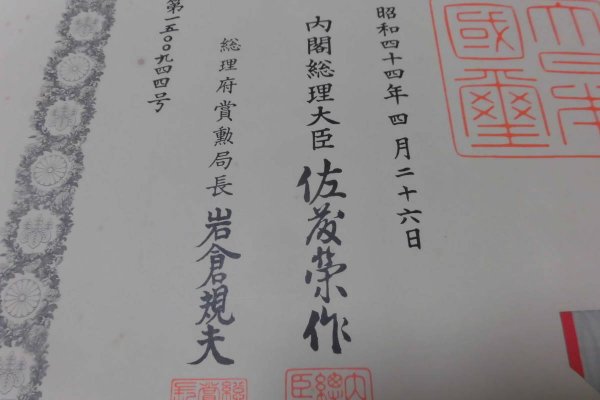 大日本
國璽
昭和四十四年四月二十六日
内閣総理大臣 佐藤榮作
総理府賞勲局長 岩倉規夫
第一五〇〇九四四号